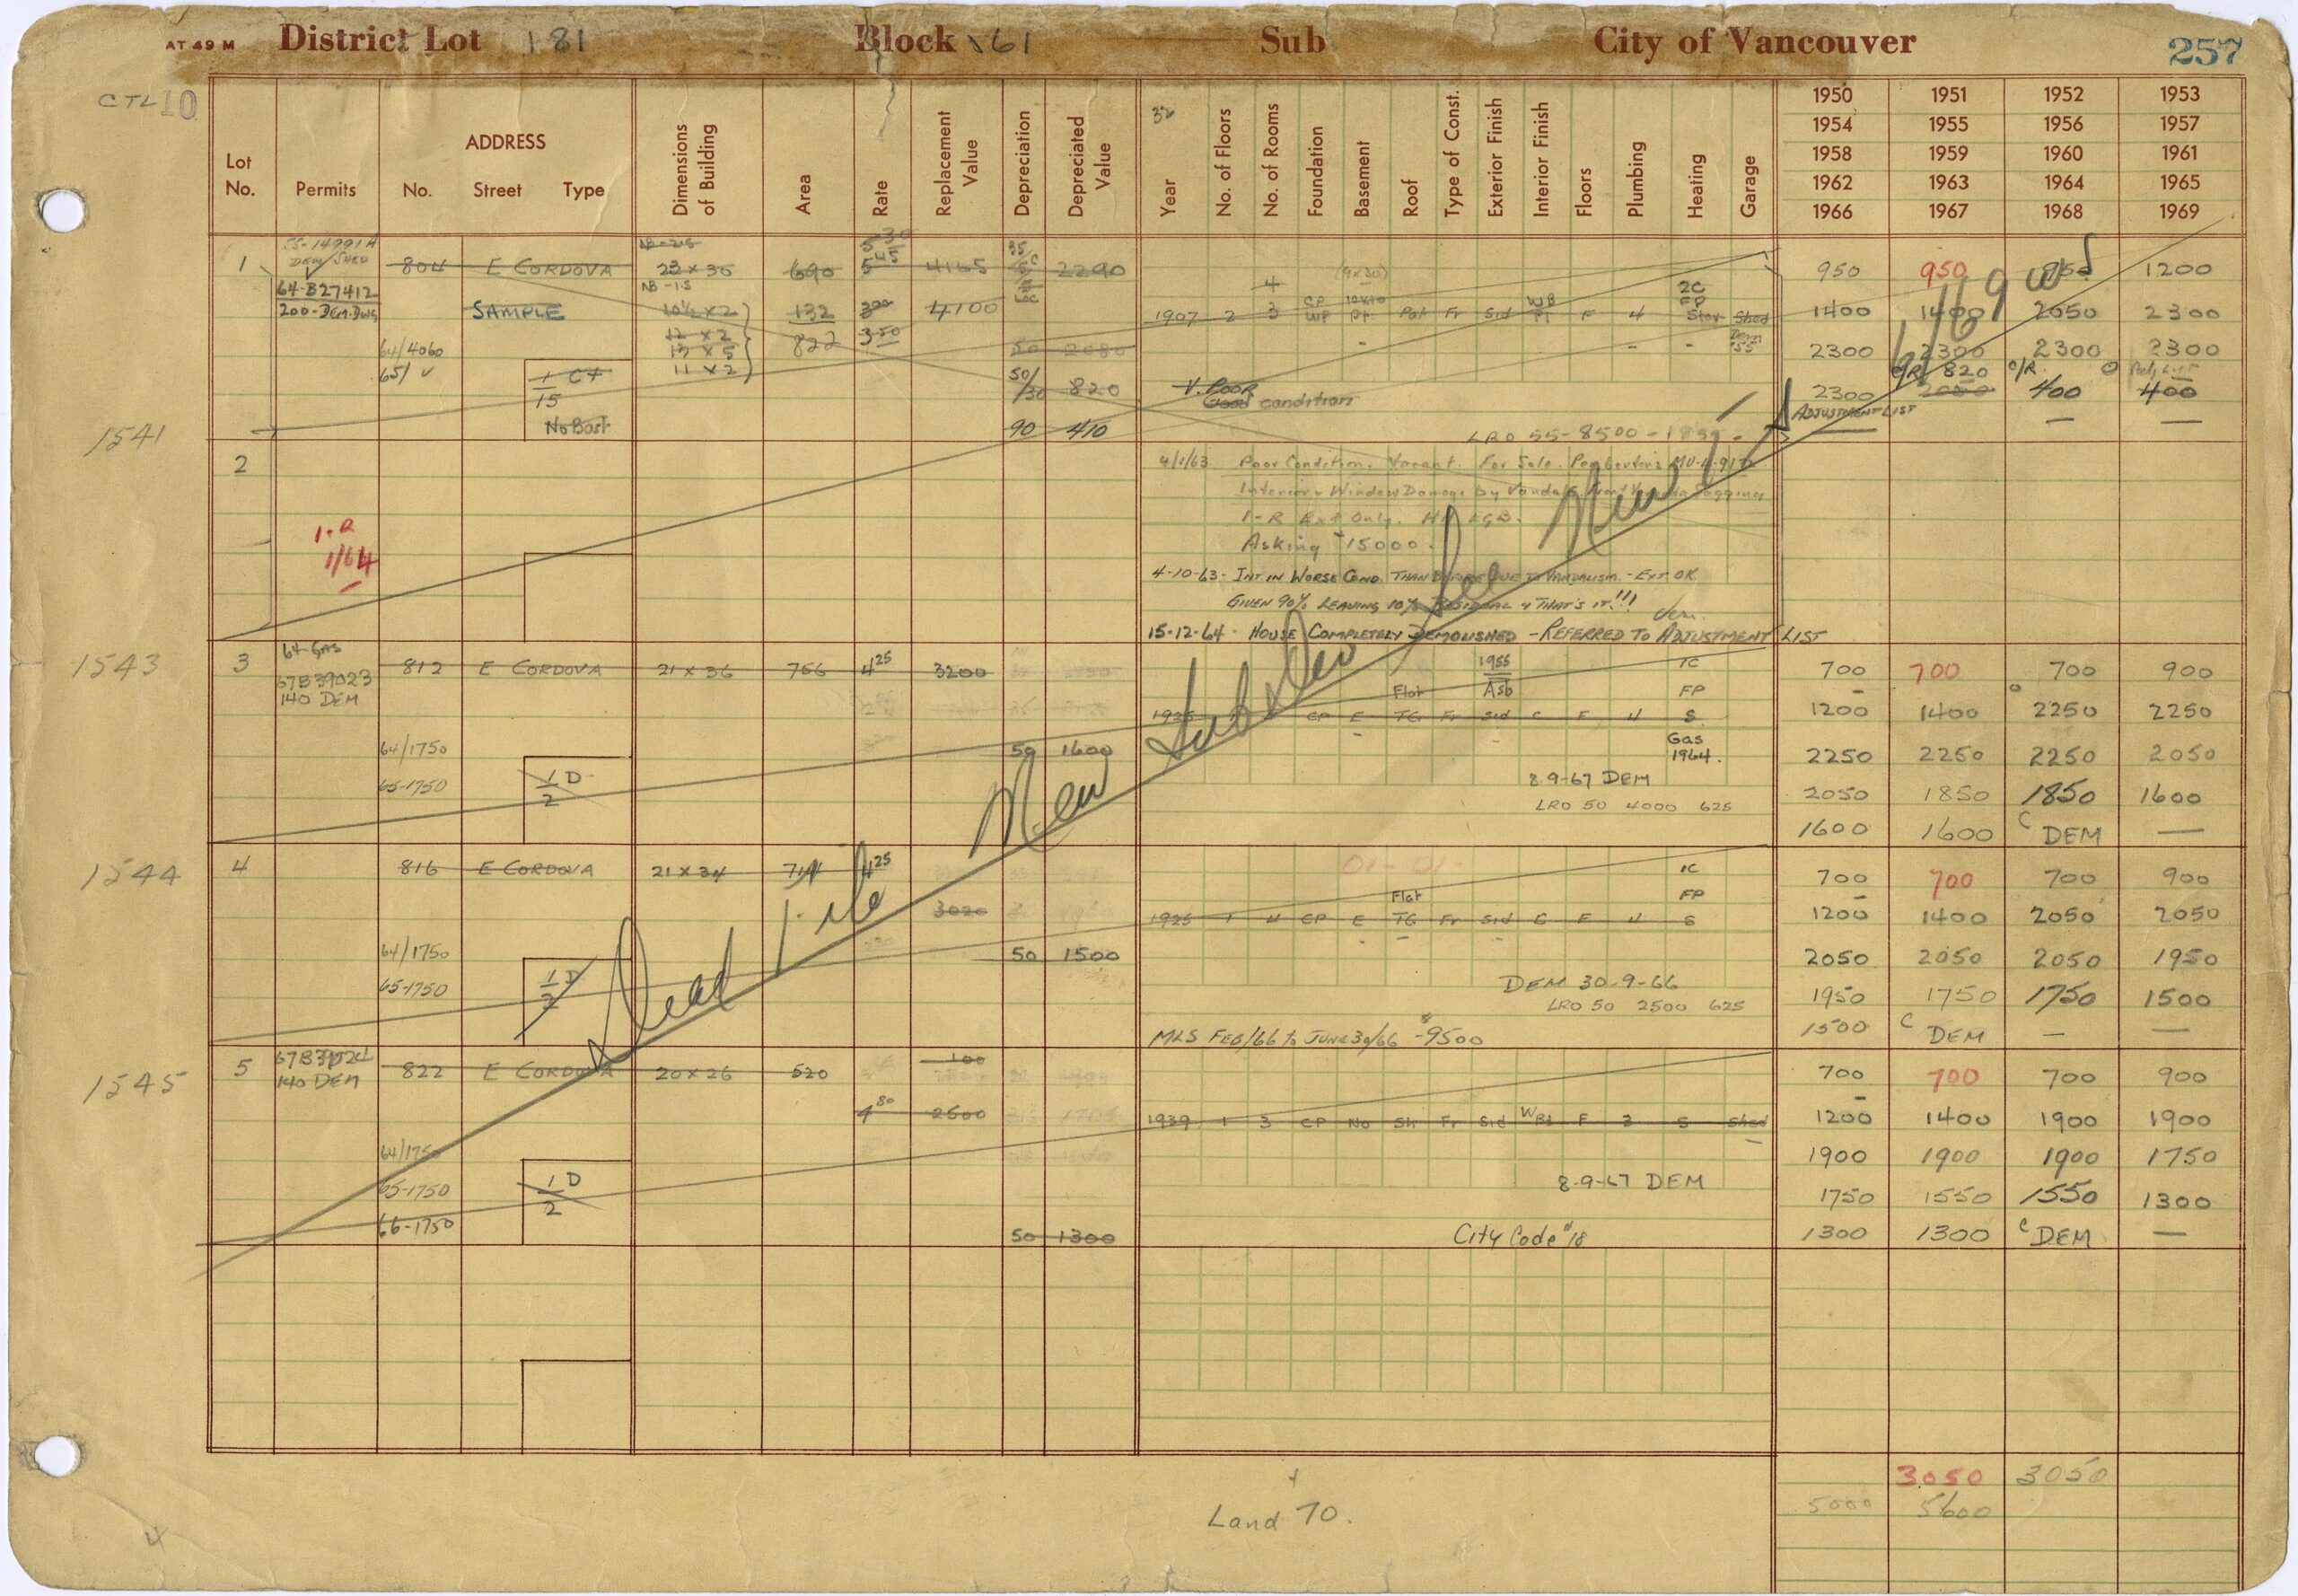 AT 49 M District Lot 181 Block 161 Sub City of Vancouver 257
CTL 10
Lot No. Permits ADDRESS No. Street Type Dimensions of Building Area Rate Replacement Value Depreciation Depreciated Value Year No. of Floors No. of Rooms Foundation Basement Roof Type of Const. Exterior Finish Interior Finish Floors Plumbing Heating Garage
32
1950 1951 1952 1953
1954 1955 1956 1957
1958 1959 1960 1961
1962 1963 1964 1965
1966 1967 1968 1969
55-14991A
DEM SHED
1 804 E CORDOVA 23 x 30 690 5 45 4165 2290
950 950 1200
64-B27412
200-DEM.DWG
SAMPLE 10½ x 2 132 4100
12 x 2 3 50
13 x 5 822
11 x 2
2C
FP
1907 2 3 WP Pt. Pat Fr Sid Pl F 4 Stov Shed
Dem 55
1400 1400 2050 2300
64/4060
65/ v
50 2080
2300 2300 2300 2300
1 Ct
15
50/30 820
V. POOR
Good condition
2300 C/R 820 C/R 400 400
ADJUSTMENT LIST
No Bast
90 410
1541
LRO 55-8500-
2
4/1/63 Poor Condition. Vacant. For Sale. Pemberton's
Interior & Window Damage by Vandals. Front Veranda Sagging
1-R Ext Only.
Asking $15000.
1-R
1/64
4-10-63- INT IN WORSE COND. THAN BEFORE DUE TO VANDALISM. - EXT OK
GIVEN 90% LEAVING 10% RESIDUAL & THAT'S IT!!!
15-12-64 - HOUSE COMPLETELY DEMOLISHED - REFERRED TO ADJUSTMENT LIST
1543
64-GAS
3 812 E CORDOVA 21 x 36 756 4 25 3200
67B39023
140 DEM
1955
Asb
1C
Flat FP
1925 CP E TG Fr Sid C F 4 S
Gas
1964.
700 700 700 900
1200 1400 2250 2250
64/1750
50 1600
2250 2250 2250 2050
65-1750
1 D
2
8-9-67 DEM
LRO 50 4000 625
2050 1850 1850 1600
1600 1600 C DEM —
1544
4 816 E CORDOVA 21 x 34 714 4 25
3020
1C
Flat FP
1925 1 4 CP E TG Fr Sid C F 4 S
700 700 700 900
1200 1400 2050 2050
64/1750
50 1500
2050 2050 2050 1950
65-1750
1 D
2
DEM 30-9-66
LRO 50 2500 625
1950 1750 1750 1500
MLS FEB/66 to JUNE 30/66 - $9500
1500 C DEM — —
1545
67B39024
140 DEM
5 822 E CORDOVA 20 x 26 520 100
4 80 2500
1939 1 3 CP No Sh Fr Sid WBd F 3 S Shed
700 700 700 900
1200 1400 1900 1900
64/1750
1900 1900 1900 1750
65-1750
1 D
2
8-9-67 DEM
1750 1550 1550 1300
66-1750
50 1300
City Code #18
1300 1300 C DEM —
Dead File New Sub Dev See New
3050 3050
5000 5600
Land 70.
4